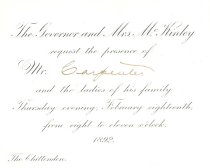 The Governor and Mrs. McKinley
request the presence of
Mr. Carpenter
and the ladies of his family
Thursday evening, February eighteenth,
from eight to eleven o'clock.
1892.
The Chittenden.